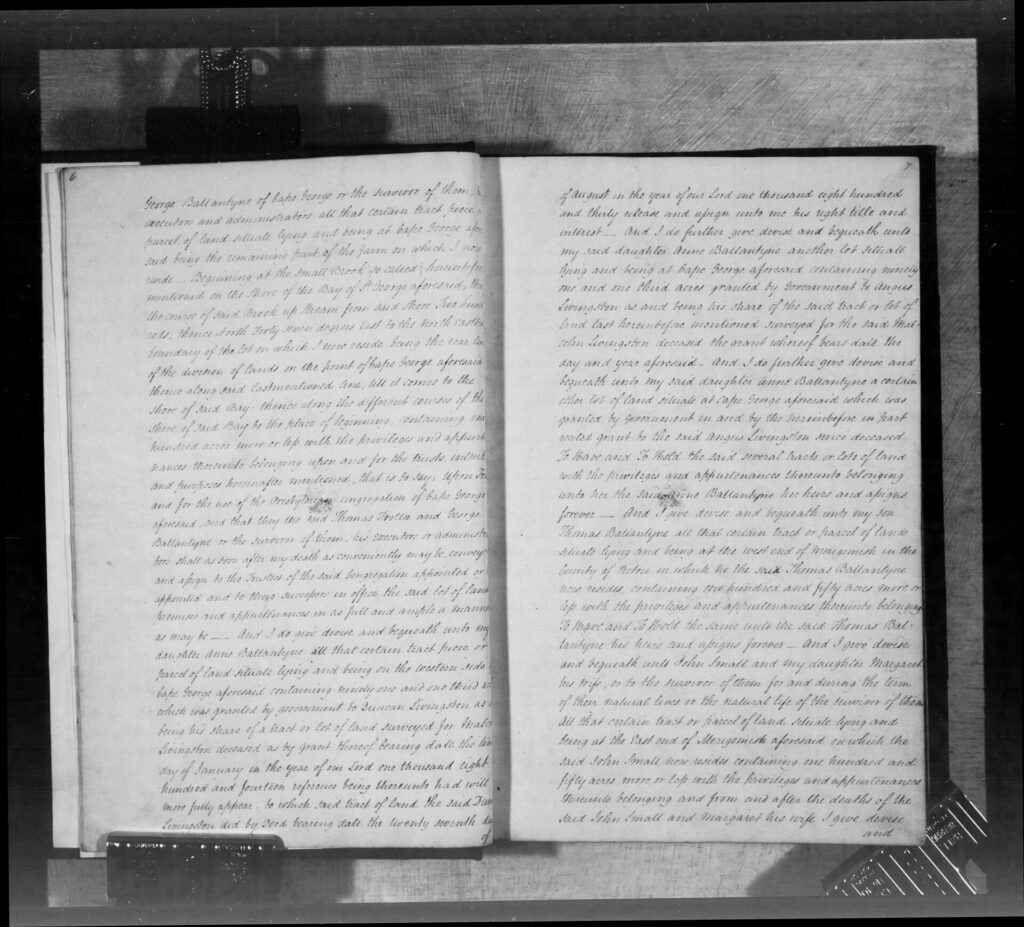 6
George Ballantyne of Cape George or the survivor of them,
executors and administrators all that certain tract piece
parcel of land situate lying and being at Cape George afore
said being the remaining part of the farm on which I now
reside — Beginning at the Small Brook (so called) hereinbefore
mentioned on the shore of the Bay of St George aforesaid, thence
the course of said Brook up stream from said shore two hundred
rods, thence North Forty seven degrees East to the North Eastern
boundary of the lot on which I now reside being the rear line
of the division of lands on the point of Cape George aforesaid
thence along said lastmentioned line, till it comes to the
shore of said Bay, thence along the different courses of the
shore of said Bay to the place of beginning, containing one
hundred acres more or less with the priviliges and appurte
nances thereunto belonging upon and for the trusts intents
and purposes hereinafter mentioned, that is to say, Upon Trust
and for the use of the Presbyterian congregation of Cape George
aforesaid, and that they the said Thomas Trotter and George
Ballantyne or the survivor of them, his executors or administra
tors shall as soon after my death as conveniently may be, convey
and assign to the Trustees of the said Congregation appointed or
appointed and to their successors in office the said lot of land
premises and appurtenances in as full and ample a manner
as may be — And I do give devise and bequeath unto my
daughter Anne Ballantyne all that certain tract piece or
parcel of land situate lying and being on the western side
Cape George aforesaid containing ninety one and one third acres
which was granted by government to Duncan Livingston as
being his share of a tract or lot of land surveyed for Malcolm
Livingston deceased as by grant thereof bearing date the ten
day of January in the year of our Lord one thousand eight
hundred and fourteen reference being thereunto had will
more fully appear. to which said tract of land the said Duncan
Livingston did by Deed bearing date the twenty seventh day
of
7
of August in the year of our Lord one thousand eight hundred
and thirty release and assign unto me his right title and
interest — And I do further give devise and bequeath unto
my said daughter Anne Ballantyne another lot situate
lying and being at Cape George aforesaid containing ninety
one and one third acres granted by Government to Angus
Livingston as and being his share of the said tract or lot of
land last hereinbefore mentioned surveyed for the said Mal
colm Livingston deceased the grant whereof bears date the
day and year aforesaid — And I do further give devise and
bequeath unto my said daughter Anne Ballantyne a certain
other lot of land situate at Cape George aforesaid which was
granted by Government in and by the hereinbefore in part
recited grant to the said Angus Livingston since deceased.
To Have and To Hold the said several tracts or lots of land
with the privileges and appurtenances thereunto belonging
unto her the said Anne Ballantyne her heirs and assigns
forever — And I give devise and bequeath unto my son
Thomas Ballantyne all that certain tract or parcel of land
situate lying and being at the west end of Merigomish in the
County of Pictou on which he the said Thomas Ballantyne
now resides, containing one hundred and fifty acres more or
less with the privileges and appurtenances thereunto belonging
To Have and To Hold the same unto the said Thomas Bal-
lantyne his heirs and assigns forever — And I give devise
and bequeath unto John Small and my daughter Margaret
his wife, or to the survivor of them for and during the term
of their natural lives or the natural life of the survivor of them
all that certain tract or parcel of land situate lying and
being at the East end of Merigomish aforesaid on which the
said John Small now resides containing one hundred and
fifty acres more or less with the privileges and appurtenances
thereunto belonging and from and after the deaths of the
said John Small and Margaret his wife I give devise
and